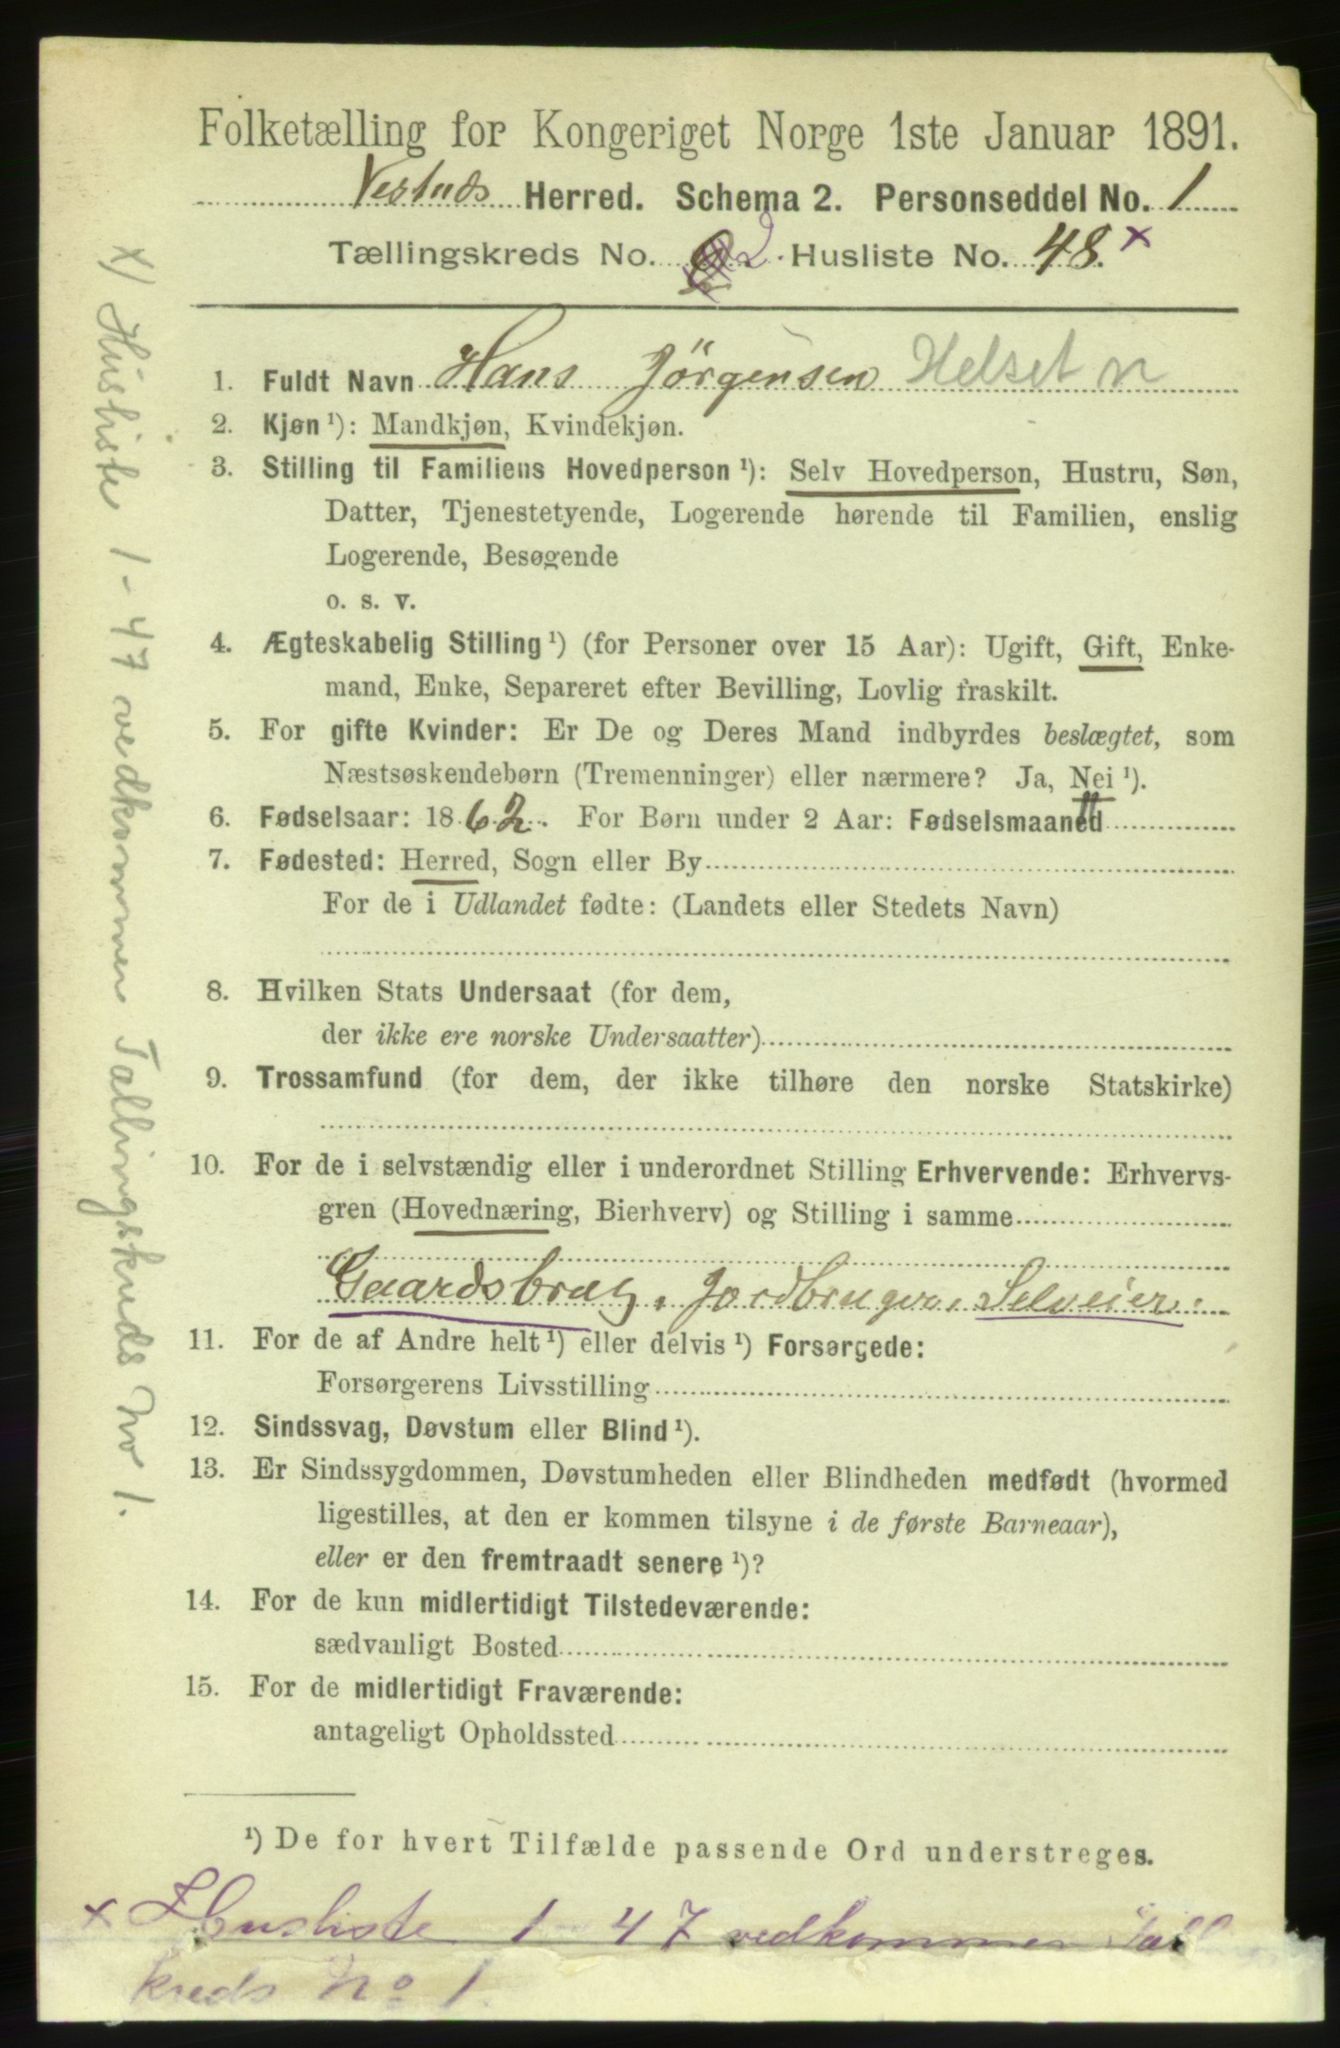 Folketælling for Kongeriget Norge 1ste Januar 1891.
Vestnes Herred. Schema 2. Personseddel No. 1
Tællingskreds No. 2. Husliste No. 48. x
1. Fuldt Navn Hans Jörgensen Helset n
2. Kjøn ¹): Mandkjøn, Kvindekjøn.
3. Stilling til Familiens Hovedperson ¹): Selv Hovedperson, Hustru, Søn,
Datter, Tjenestetyende, Logerende hørende til Familien, enslig
Logerende, Besøgende
o. s. v.
4. Ægteskabelig Stilling ¹) (for Personer over 15 Aar): Ugift, Gift, Enke-
mand, Enke, Separeret efter Bevilling, Lovlig fraskilt.
5. For gifte Kvinder: Er De og Deres Mand indbyrdes beslægtet, som
Næstsøskendebørn (Tremenninger) eller nærmere? Ja, Nei ¹).
6. Fødselsaar: 1862. For Børn under 2 Aar: Fødselsmaaned
7. Fødested: Herred, Sogn eller By
For de i Udlandet fødte: (Landets eller Stedets Navn)
8. Hvilken Stats Undersaat (for dem,
der ikke ere norske Undersaatter)
9. Trossamfund (for dem, der ikke tilhøre den norske Statskirke)
10. For de i selvstændig eller i underordnet Stilling Erhvervende: Erhvervs-
gren (Hovednæring, Bierhverv) og Stilling i samme
Gaardsbrug, Jordbruger, Selveier.
11. For de af Andre helt ¹) eller delvis ¹) Forsørgede:
Forsørgerens Livsstilling
12. Sindssvag, Døvstum eller Blind ¹).
13. Er Sindssygdommen, Døvstumheden eller Blindheden medfødt (hvormed
ligestilles, at den er kommen tilsyne i de første Barneaar),
eller er den fremtraadt senere ¹)?
14. For de kun midlertidigt Tilstedeværende:
sædvanligt Bosted
15. For de midlertidigt Fraværende:
antageligt Opholdssted
¹) De for hvert Tilfælde passende Ord understreges.
x Husliste 1-47 vedkommer
kreds No 1.
x) Husliste 1-47 vedkommer Tallingskreds No 1.